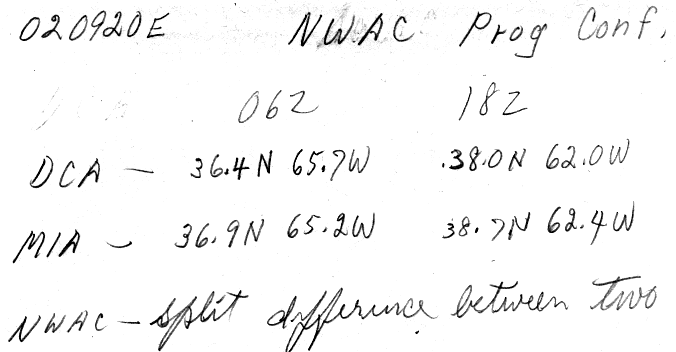 020920E NWAC Prog Conf.
06Z 18Z
DCA - 36.4N 65.7W 38.0N 62.0W
MIA - 36.9N 65.2W 38.7N 62.4W
NWAC - split difference between two